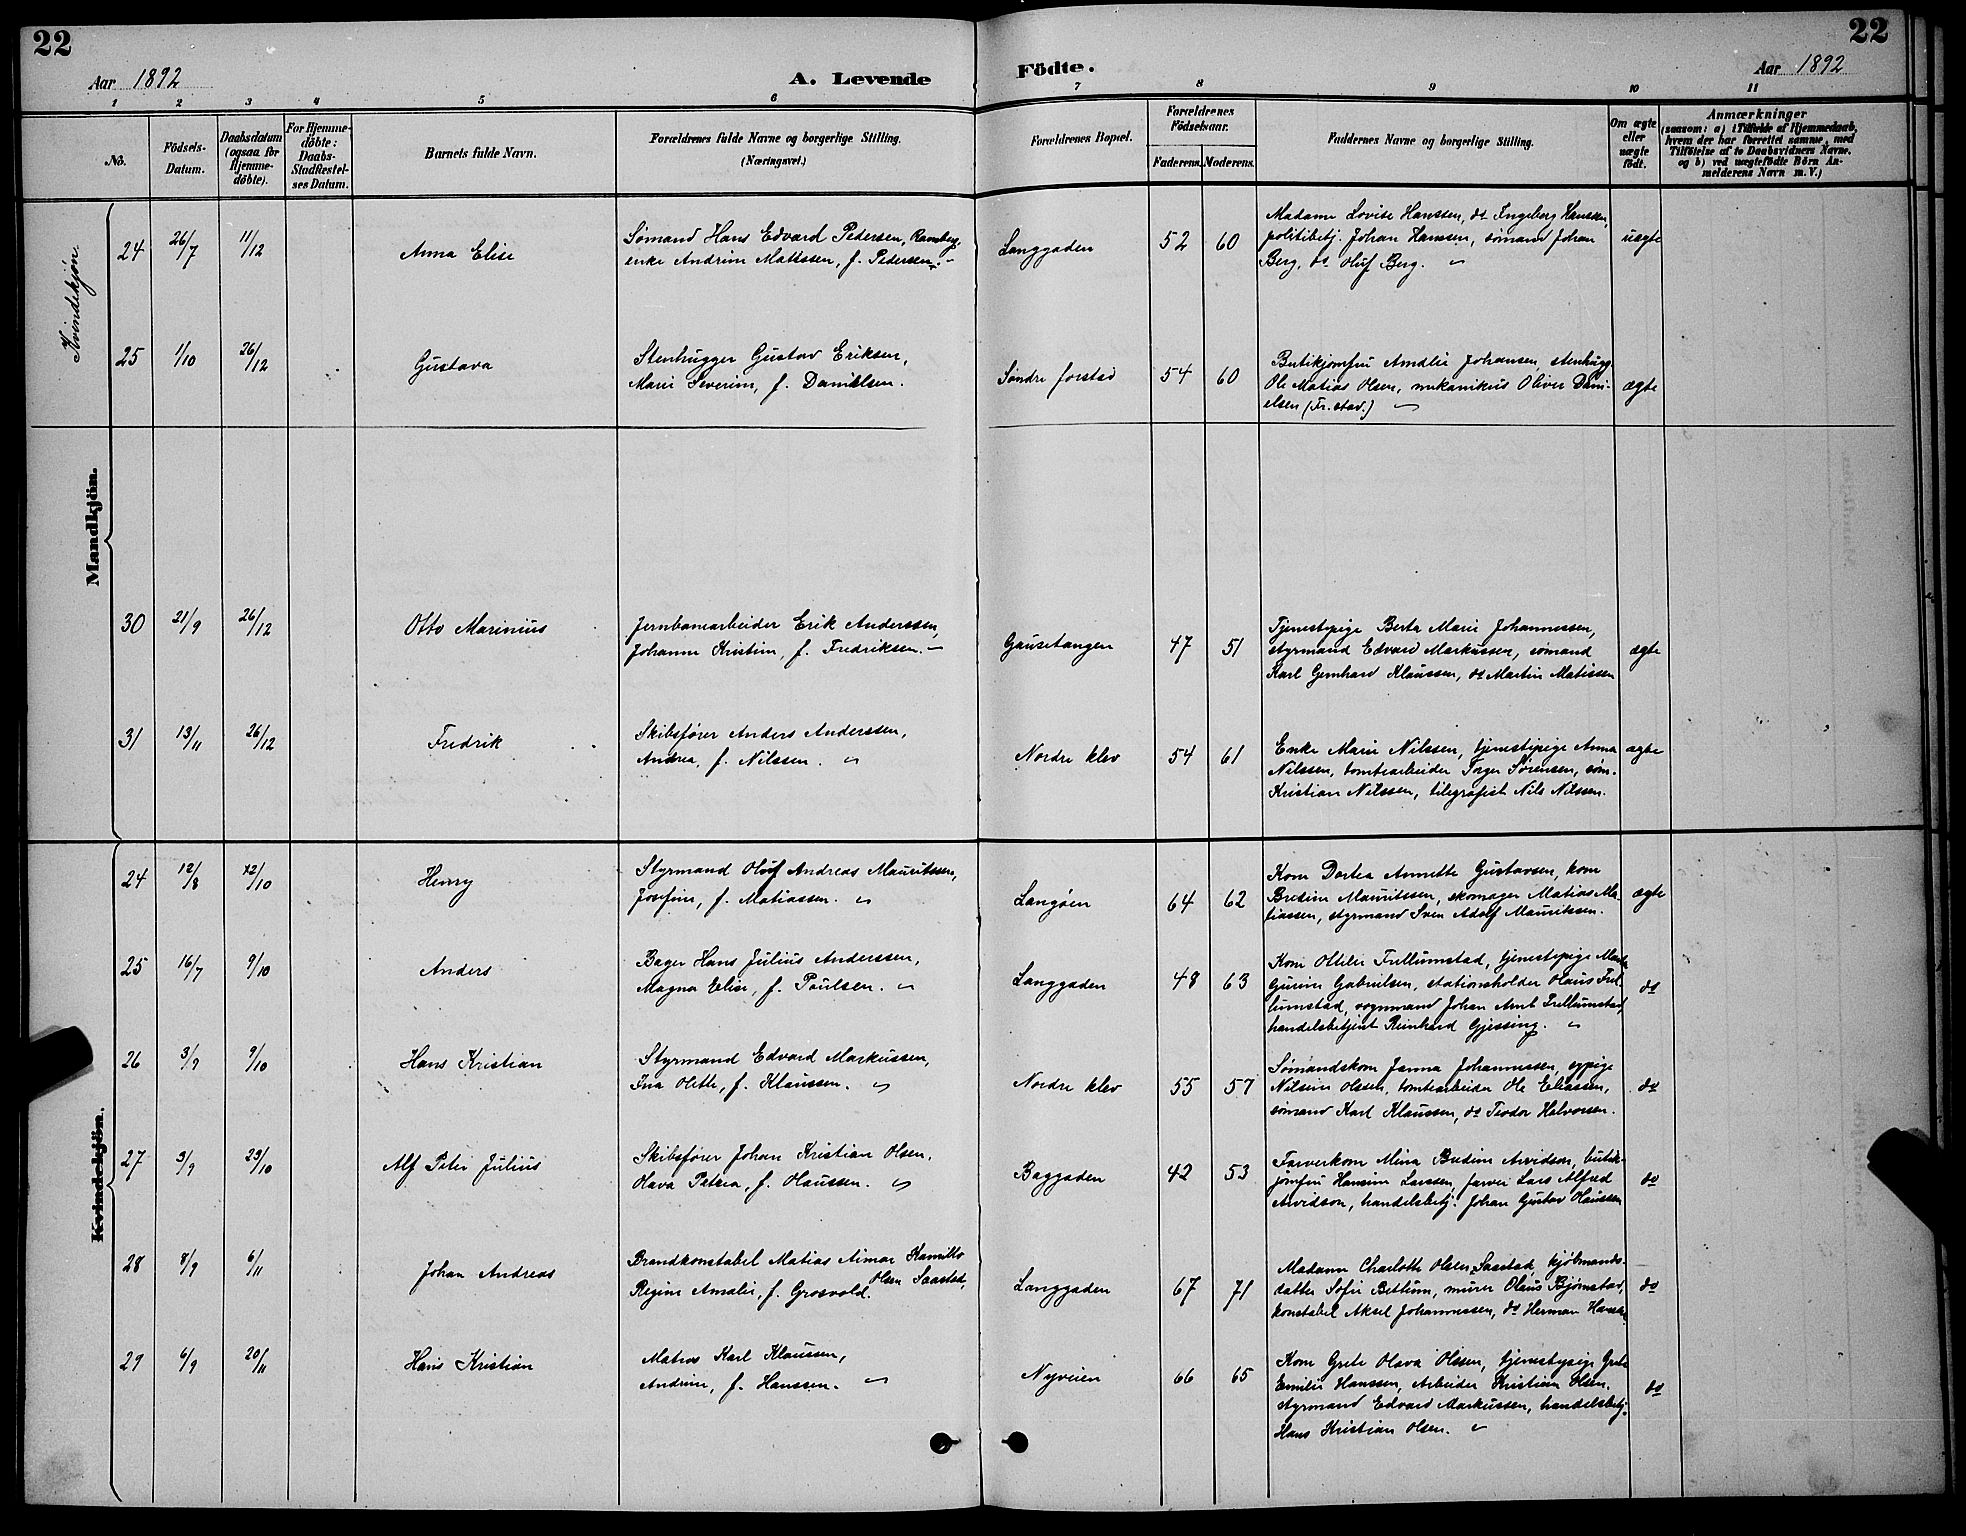 22
22
Aar 1892
A. Levende
Födte.
Aar 1892
1 2 3 4 5 6 7 8 9 10 11
No.
Födsels-
Datum.
Daabsdatum
(ogsaa for
Hjemme-
döbte).
For Hjemme-
döbte:
Daabs-
Stadfæstel-
ses Datum.
Barnets fulde Navn.
Forældrenes fulde Navne og borgerlige Stilling.
(Næringsvei.)
Forældrenes Bopæl.
Forældrenes
Födselsaar.
Faderens. Moderens.
Faddernes Navne og borgerlige Stilling.
Om ægte
eller
uægte
födt.
Anmærkninger
(saasom: a) i Tilfælde af Hjemmedaab,
hvem der har forrettet samme, med
Tilföielse af to Daabsvidners Navne,
og b) ved uægtefödte Börn An-
melderens Navn m. V.)
Kvindekjøn.
24 26/7 11/12 Anna Elise
Sømand Hans Edvard Pedersen, Ramberg,
enke Andrine Mattssen, f. Pedersen.
Langgaden 52 60
Madame Lovise Hanssen, do Ingeborg Hanssen,
politibetj. Johan Hanssen, sømand Johan
Berg, do Oluf Berg.
uægte
25 1/10 26/12 Gustava
Stenhugger Gustav Eriksen,
Marie Severine, f. Danielsen.
Søndre forstad 54 60
Butikjomfru Amalie Johansen, stenhugg.
Ole Matias Olsen, mekanikus Oliver Dani-
elsen (Fr.stad.)
ægte
Mandkjön.
30 21/9 26/12 Otto Marinius
Jernbanearbeider Erik Anderssen,
Johanne Kristine, f. Fredriksen.
Gausetangen 47 51
Tjenestepige Berta Marie Johannessen,
styrmand Edvard Markussen, sømand
Karl Gernhard Klaussen, do Martin Matissen
ægte
31 13/11 26/12 Fredrik
Skibsfører Anders Anderssen,
Andrea, f. Nilssen.
Nordre klev 54 61
Enke Marie Nilssen, tjenestepige Anna
Nilssen, tomtearbeider Torger Sørensen, søm.
Kristian Nilssen, telegrafist Nils Nilssen.
ægte
Kvindekjön.
24 12/8 /10 Henry
Styrmand Oluf Andreas Mauritssen,
Josefine, f. Matiassen.
Langøen 64 62
Kone Dortea Annette Gustavsen, kone
Bredine Mauritssen, skomager Matias Ma-
tiassen, styrmand Sven Adolf Mauritssen.
ægte
25 16/7 9/10 Anders
Bager Hans Julius Anderssen,
Magna Elise, f. Paulsen.
Langgaden 48 63
Kone Ottilie Trellumstad, tjenestepige
Gurine Gabrielsen, stationsholder Olaus Trel-
lumstad, vognmand Johan Arnt Trellumstad,
handelsbetjent Reinhard Gjessing.
do
26 3/9 9/10 Hans Kristian
Styrmand Edvard Markussen,
Ina Olette, f. Klaussen.
Nordre klev 55 57
Sømandskone Janna Johannessen, sypige
Nilsine Olssen, tomtearbeider Ole Eliassen,
sømand Karl Klaussen, do Teodor Halvorsen.
do
27 3/9 23/10 Alf Peter Julius
Skibsfører Johan Kristian Olsen,
Olava Petrea, f. Olaussen.
Baggaden 42 53
Farverkone Mina Bredine Arvidson, butik-
jomfru Hansine Larssen, farver Lars Alfred
Arvidson, handelsbetj. Johan Gustav Olaussen
do
28 8/9 6/11 Johan Andreas
Brandkonstabel Matias Aimar Kamillo
Olsen Saastad,
Regine Amalie, f. Grosvold.
Langgaden 67 71
Madame Charlotte Olsen Saastad, kjøbmands-
datter Sofie Bettum, murer Olaus Bjørnstad,
konstabel Aksel Johannessen, do Herman Hanssen
do
29 6/9 20/11 Hans Kristian
Matros Karl Klaussen,
Andrine, f. Hanssen.
Nyveien 66 65
Kone Grete Olava Olssen, tjenestepige Grete
Emilie Hanssen, Arbeider Kristian Olsen,
Styrmand Edvard Markussen, handelsbetj.
Hans Kristian Olsen.
do